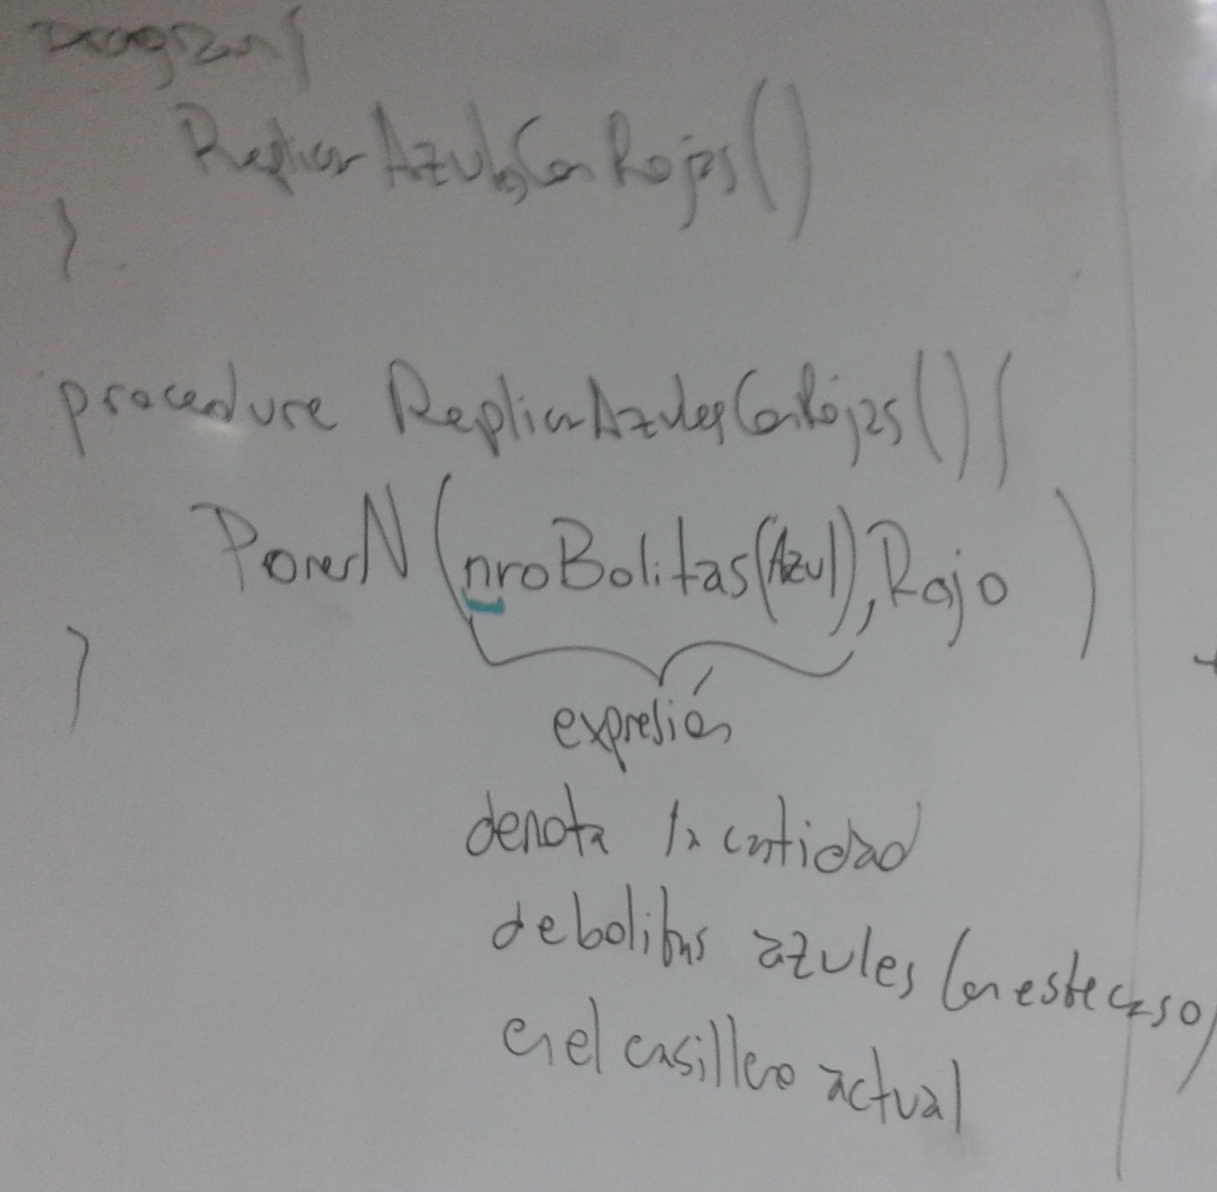 program {
ReplicarAzulesConRojas()
}
procedure ReplicarAzulesConRojas() {
PonerN(nroBolitas(Azul), Rojo )
}
expresión
denota la cantidad
de bolitas azules (en este caso)
en el casillero actual